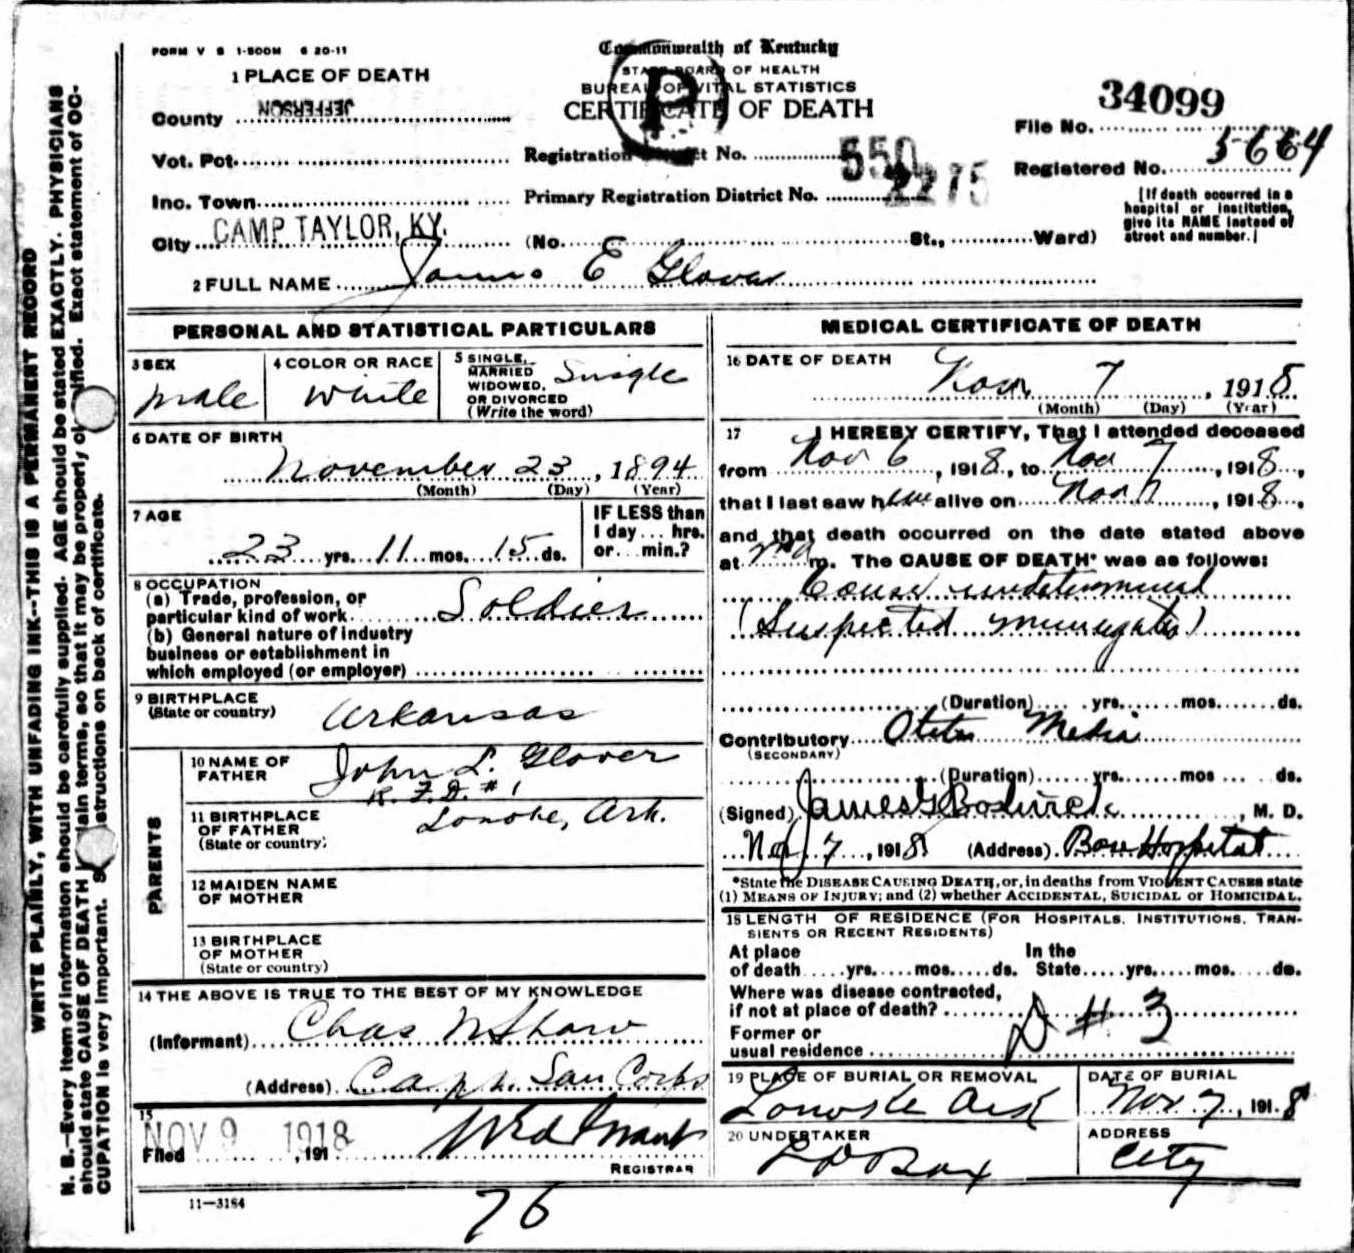 FORM V S 1-500M 6 20-11
Commonwealth of Kentucky
STATE BOARD OF HEALTH
BUREAU OF VITAL STATISTICS
CERTIFICATE OF DEATH
P
1 PLACE OF DEATH
County JEFFERSON
Vot. Pct.
Inc. Town
City CAMP TAYLOR, KY. (No. St., Ward)
Registration District No. 550
Primary Registration District No. 2275
File No. 34099
Registered No. 5664
[If death occurred in a
hospital or institution,
give its NAME instead of
street and number.]
2 FULL NAME James E Glover
PERSONAL AND STATISTICAL PARTICULARS
3 SEX
male
4 COLOR OR RACE
White
5 SINGLE,
MARRIED
WIDOWED,
OR DIVORCED
(Write the word)
Single
6 DATE OF BIRTH
November 23, 1894
(Month) (Day) (Year)
7 AGE
23 yrs. 11 mos. 15 ds.
IF LESS than
1 day ... hrs.
or ... min.?
8 OCCUPATION
(a) Trade, profession, or
particular kind of work Soldier
(b) General nature of industry
business or establishment in
which employed (or employer)
9 BIRTHPLACE
(State or country)
Arkansas
PARENTS
10 NAME OF
FATHER
John L. Glover
R. F. D. # 1
11 BIRTHPLACE
OF FATHER
(State or country)
Lonoke, Ark.
12 MAIDEN NAME
OF MOTHER
13 BIRTHPLACE
OF MOTHER
(State or country)
14 THE ABOVE IS TRUE TO THE BEST OF MY KNOWLEDGE
(Informant) Chas N Shaw
(Address) Capt. San Corps
15
Filed NOV 9 1918, 191
REGISTRAR
11—3184
76
MEDICAL CERTIFICATE OF DEATH
16 DATE OF DEATH
Nov 7, 1918
(Month) (Day) (Year)
17 I HEREBY CERTIFY, That I attended deceased
from Nov 6, 1918, to Nov 7, 1918,
that I last saw him alive on Nov 7, 1918,
and that death occurred on the date stated above
at m. The CAUSE OF DEATH* was as follows:
Cause undetermined
(Suspected Meningitis)
(Duration) yrs. mos. ds.
Contributory Otitis Media
(SECONDARY)
(Duration) yrs. mos. ds.
(Signed) James G Bostwick, M. D.
Nov 7, 1918 (Address) Base Hospital
*State the DISEASE CAUSING DEATH, or, in deaths from VIOLENT CAUSES state
(1) MEANS OF INJURY; and (2) whether ACCIDENTAL, SUICIDAL or HOMICIDAL.
18 LENGTH OF RESIDENCE (FOR HOSPITALS, INSTITUTIONS, TRAN-
SIENTS OR RECENT RESIDENTS)
At place In the
of death yrs. mos. ds. State yrs. mos. ds.
Where was disease contracted,
if not at place of death?
D # 3
Former or
usual residence
19 PLACE OF BURIAL OR REMOVAL
Lonoke Ark
DATE OF BURIAL
Nov 7, 1918
20 UNDERTAKER
L D Bax
ADDRESS
City
WRITE PLAINLY, WITH UNFADING INK--THIS IS A PERMANENT RECORD
N. B.—Every item of information should be carefully supplied. AGE should be stated EXACTLY. PHYSICIANS
should state CAUSE OF DEATH in plain terms, so that it may be properly classified. Exact statement of OC-
CUPATION is very important. See instructions on back of certificate.